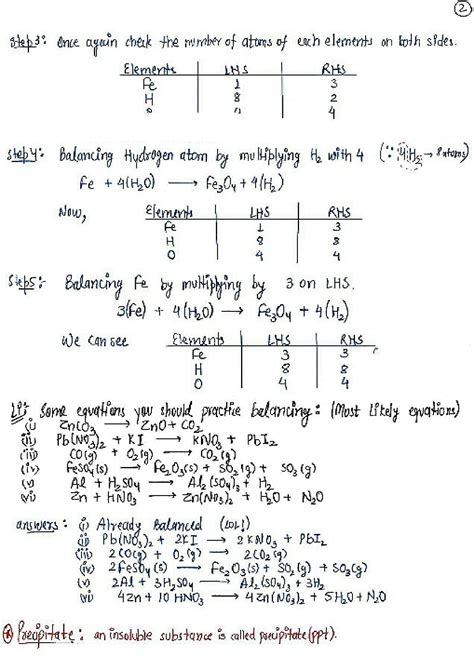 2
Step3: Once again check the number of atoms of each elements on both sides.
Elements LHS RHS
Fe 1 3
H 8 2
O 4
Step4: Balancing Hydrogen atom by multiplying H₂ with 4 (∵ 4H₂ → 8 atoms)
Fe + 4(H₂O) → Fe₃O₄ + 4(H₂)
Now, Elements LHS RHS
Fe 1 3
H 8 8
O 4 4
Step5:- Balancing Fe by multiplying by 3 on LHS.
3(Fe) + 4(H₂O) → Fe₃O₄ + 4(H₂)
We can see Elements LHS RHS
Fe 3 3
H 8 8
O 4 4
Some equations you should practie balancing: (Most likely equations)
(i) ZnCO₃ → ZnO + CO₂
(ii) Pb(NO₃)₂ + KI → KNO₃ + PbI₂
(iii) CO(g) + O₂(g) → CO₂(g)
(iv) FeSO₄(s) → Fe₂O₃(s) + SO₂(g) + SO₃(g)
(v) Al + H₂SO₄ → Al₂(SO₄)₃ + H₂
(vi) Zn + HNO₃ → Zn(NO₃)₂ + H₂O + N₂O
answers: (i) Already Balanced (LOL!)
(ii) Pb(NO₃)₂ + 2KI → 2KNO₃ + PbI₂
(iii) 2CO(g) + O₂(g) → 2CO₂(g)
(iv) 2FeSO₄(s) → Fe₂O₃(s) + SO₂(g) + SO₃(g)
(v) 2Al + 3H₂SO₄ → Al₂(SO₄)₃ + 3H₂
(vi) 4Zn + 10HNO₃ → 4Zn(NO₃)₂ + 5H₂O + N₂O
Precipitate: an insoluble substance is called precipitate(ppt).